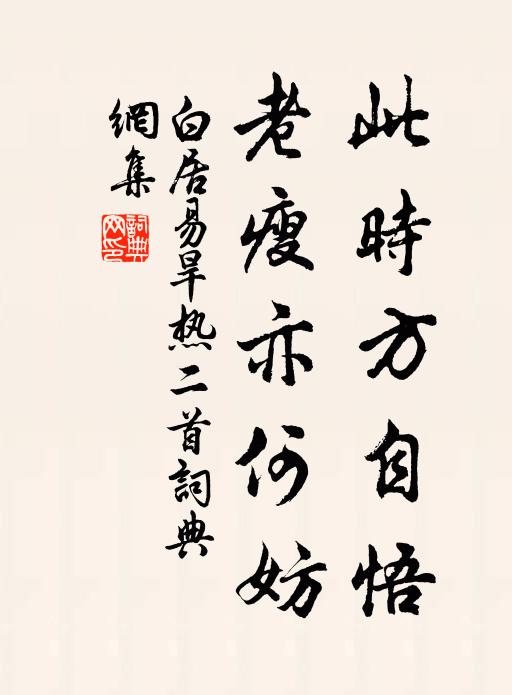 此時方自悟
老瘦亦何妨
白居易旱热二首詞典
網集
詞典
网印